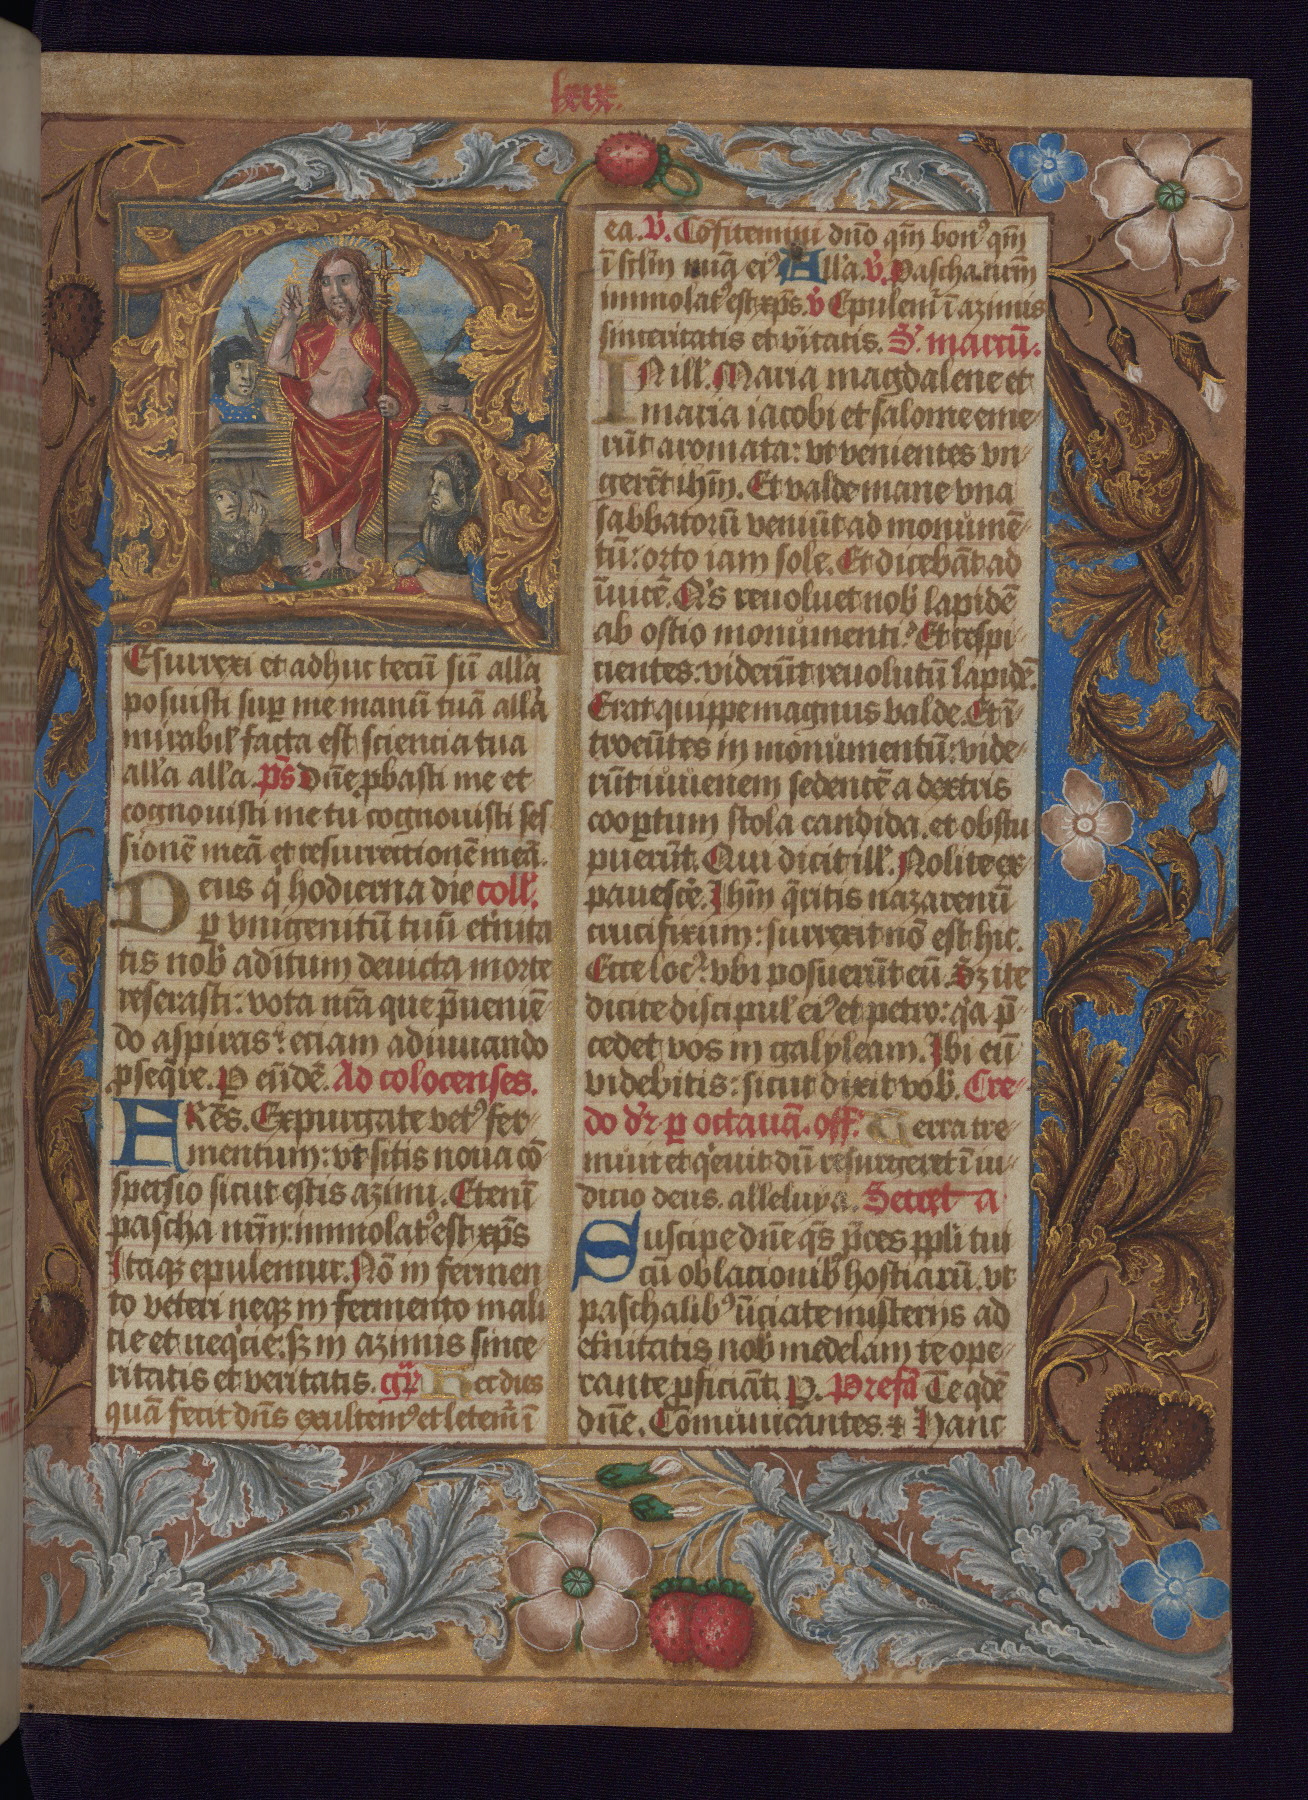 lxix.
Esurrexi et adhuc tecū sū all'a
posuisti sup me manū tuā all'a
mirabil' facta est sciencia tua
all'a all'a. p̄s Dn̄e ꝓbasti me et
cognouisti me tu cognouisti ses
sionē meā et resurrectionē meā.
Deus q' hodierna die coll'.
ꝑ vnigenitū tuū et'nita
tis nob' aditum deuicta morte
reserasti: vota nr̄a que p̄ueniē-
do aspiras: eciam adiuuando
ꝓseq̄re. P eūdē. Ad colocenses.
FRēs. Expurgate vet' fer-
mentum: vt sitis noua cō
spersio sicut estis azimi. Etenī
pascha nr̄m immolat' est xp̄s
Itaqꝫ epulemur. Nō in fermen
to veteri neqꝫ in fermento mali
cie et neq'cie: sꝫ in azimis since-
ritatis et veritatis. gr̄ Hec dies
quā fecit dn̄s exultem' et letem' ī
ea. v̄. Cōfitemini dn̄o qm̄ bon' qm̄
ī sclm̄ mīa ei' All'a. v̄. Pascha nr̄m
immolat' est xp̄s. v̄ Epulem' ī azimis
sinceritatis et v̄itatis. S'. marcū.
IN ill'. Maria magdalene et
maria iacobi et salome eme-
rūt aromata: vt venientes vn-
gerēt ih̄m. Et valde mane vna
sabbatorū veniūt ad monumē-
tū: orto iam sole. Et dicebāt ad
īuicē. Q's reuoluet nob' lapidē
ab ostio monumenti? Et respi-
cientes: viderūt reuolutū lapidē.
Erat quippe magnus valde. Et ī-
troeūtes in monumentū: vide-
rūt iuuenem sedentē a dextris
coopertum stola candida. et obstu
puerūt. Qui dicit ill'. Nolite ex
pauescē. Ih̄m q̄ritis nazarenū
crucifixum: surrexit nō est hic.
Ecce loc' vbi posuerūt eū. Sꝫ ite
dicite discipul' ei' et petro: q'a p̄
cedet vos in galyleam. Ibi eū
videbitis: sicut dixit vob'. Cre-
do d'r ꝑ octauā. off'. Terra tre-
muit et q'euit dū resurgeret ī iu-
dicio deus. alleluya. Secret a
Suscipe dn̄e q̄s p̄ces ppli tui
cū oblacionib' hostiarū. vt
paschalib' īiciate misteriis ad
et'nitatis nob' medelam te ope-
rante ꝓficiāt. P. Prefā Te q̇dē
dn̄e. Comunicantes. ⁊ Hanc